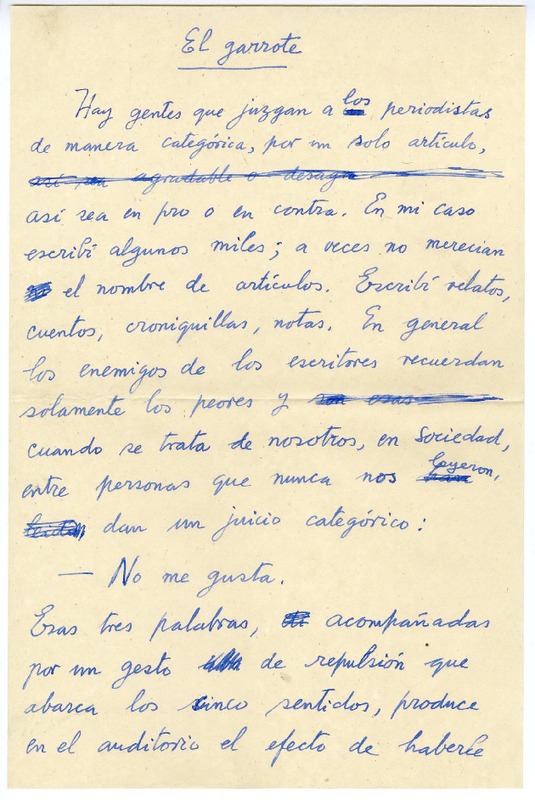 El garrote
Hay gentes que juzgan a los periodistas
de manera categórica, por un solo artículo,
así sea agradable o desagra
así sea en pro o en contra. En mi caso
escribí algunos miles; a veces no merecían
el nombre de artículos. Escribí relatos,
cuentos, croniquillas, notas. En general
los enemigos de los escritores recuerdan
solamente los peores y con esas
cuando se trata de nosotros, en sociedad,
entre personas que nunca nos leyeron,
dan un juicio categórico:
— No me gusta.
Esas tres palabras, acompañadas
por un gesto de repulsión que
abarca los cinco sentidos, produce
en el auditorio el efecto de haberle